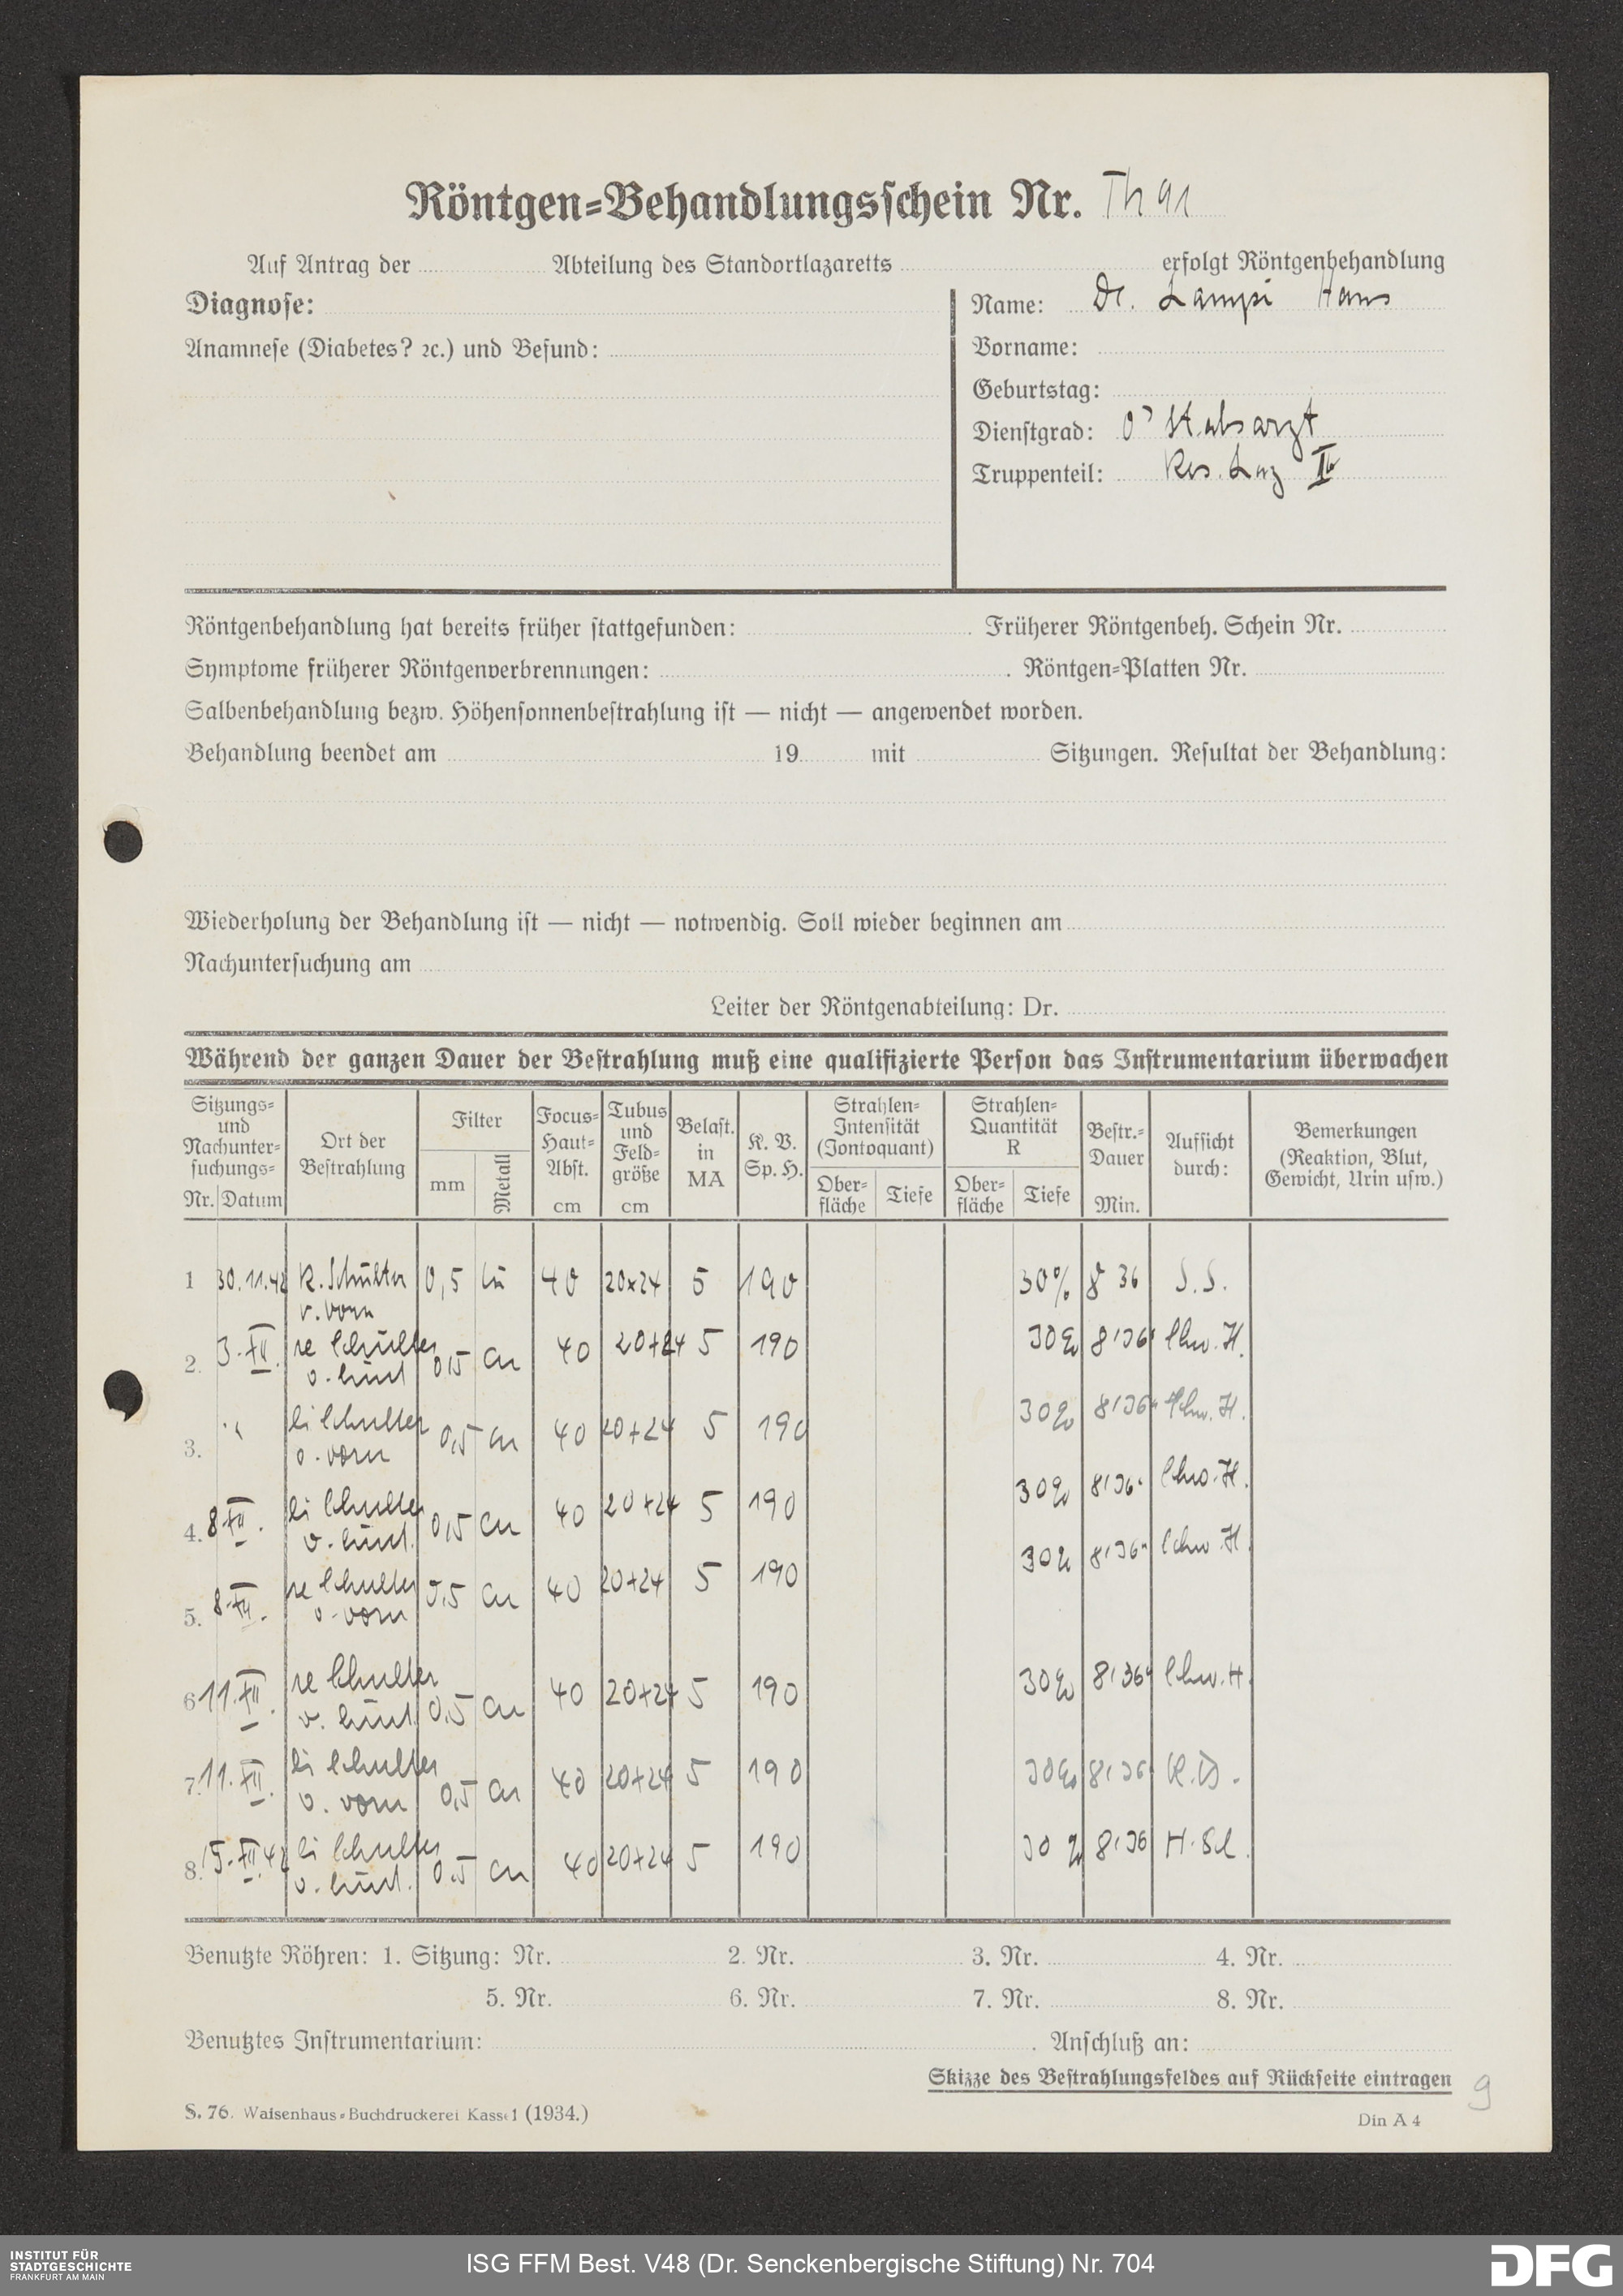 Röntgen=Behandlungsschein Nr. Th 91
Auf Antrag der Abteilung des Standortlazaretts erfolgt Röntgenbehandlung
Diagnose:
Name: Dr. Lampé Hans
Anamnese (Diabetes? ꝛc.) und Befund:
Vorname:
Geburtstag:
Dienstgrad: O'Stabsarzt
Truppenteil: Res. Laz
Röntgenbehandlung hat bereits früher stattgefunden: Früherer Röntgenbeh. Schein Nr.
Symptome früherer Röntgenverbrennungen: Röntgen=Platten Nr.
Salbenbehandlung bezw. Höhensonnenbestrahlung ist — nicht — angewendet worden.
Behandlung beendet am 19 mit Sitzungen. Resultat der Behandlung:
Wiederholung der Behandlung ist — nicht — notwendig. Soll wieder beginnen am
Nachuntersuchung am
Leiter der Röntgenabteilung: Dr.
Während der ganzen Dauer der Bestrahlung muß eine qualifizierte Person das Instrumentarium überwachen
Sitzungs= und Nachunter= suchungs= Nr. Datum
Ort der Bestrahlung
Filter mm Metall
Focus= Haut= Abst. cm
Tubus und Feld= größe cm
Belast. in MA
K. V. Sp. H.
Strahlen= Intensität (Jontoquant) Ober= fläche Tiefe
Strahlen= Quantität R Ober= fläche Tiefe
Bestr.= Dauer Min.
Aufsicht durch:
Bemerkungen (Reaktion, Blut, Gewicht, Urin usw.)
1 30.11.42 R. Schulter 0,5 Cu 40 20x24 5 190 30% 8 36 S.S.
v. vorn
2. 3.XII. re Schulter 0,5 Cu 40 20+24 5 190 30% 8'36" Schw. H.
v. hint
3. " li Schulter 0,5 Cu 40 20+24 5 190 30% 8'36" Schw. H.
v. vorn
4. 8.XII. li Schulter 0,5 Cu 40 20+24 5 190 30% 8'36" Schw. H.
v. hint.
5. 8.XII. re Schulter 0,5 Cu 40 20+24 5 190 30% 8'36" Schw. H.
v. vorn
6 11.XII. re Schulter 0,5 Cu 40 20+24 5 190 30% 8'36" Schw. H.
v. hint.
7. 11.XII. li Schulter 0,5 Cu 40 20+24 5 190 30% 8'36
v. vorn
8. 15.XII.42 li Schulter 0,5 Cu 40 20+24 5 190 30% 8'36
v. hint.
Benutzte Röhren: 1. Sitzung: Nr. 2. Nr. 3. Nr. 4. Nr.
5. Nr. 6. Nr. 7. Nr. 8. Nr.
Benutztes Instrumentarium: Anschluß an:
Skizze des Bestrahlungsfeldes auf Rückseite eintragen
9
S. 76. Waisenhaus=Buchdruckerei Kassel (1934.) Din A 4
INSTITUT FÜR
STADTGESCHICHTE
FRANKFURT AM MAIN
ISG FFM Best. V48 (Dr. Senckenbergische Stiftung) Nr. 704
DFG